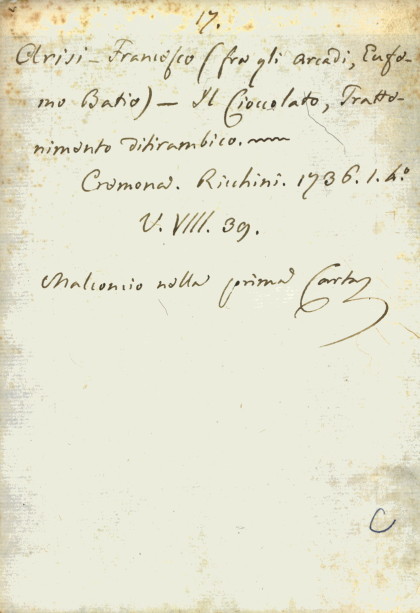 17.
Arisi - Francesco (fra gli arcadi, Eufo-
mo Batio) - Il Cioccolato, Tratte-
nimento ditirambico.
Cremona. Ricchini. 1736. 1. 4.º
V. VIII. 39.
Malconcio nella prima Carta
C